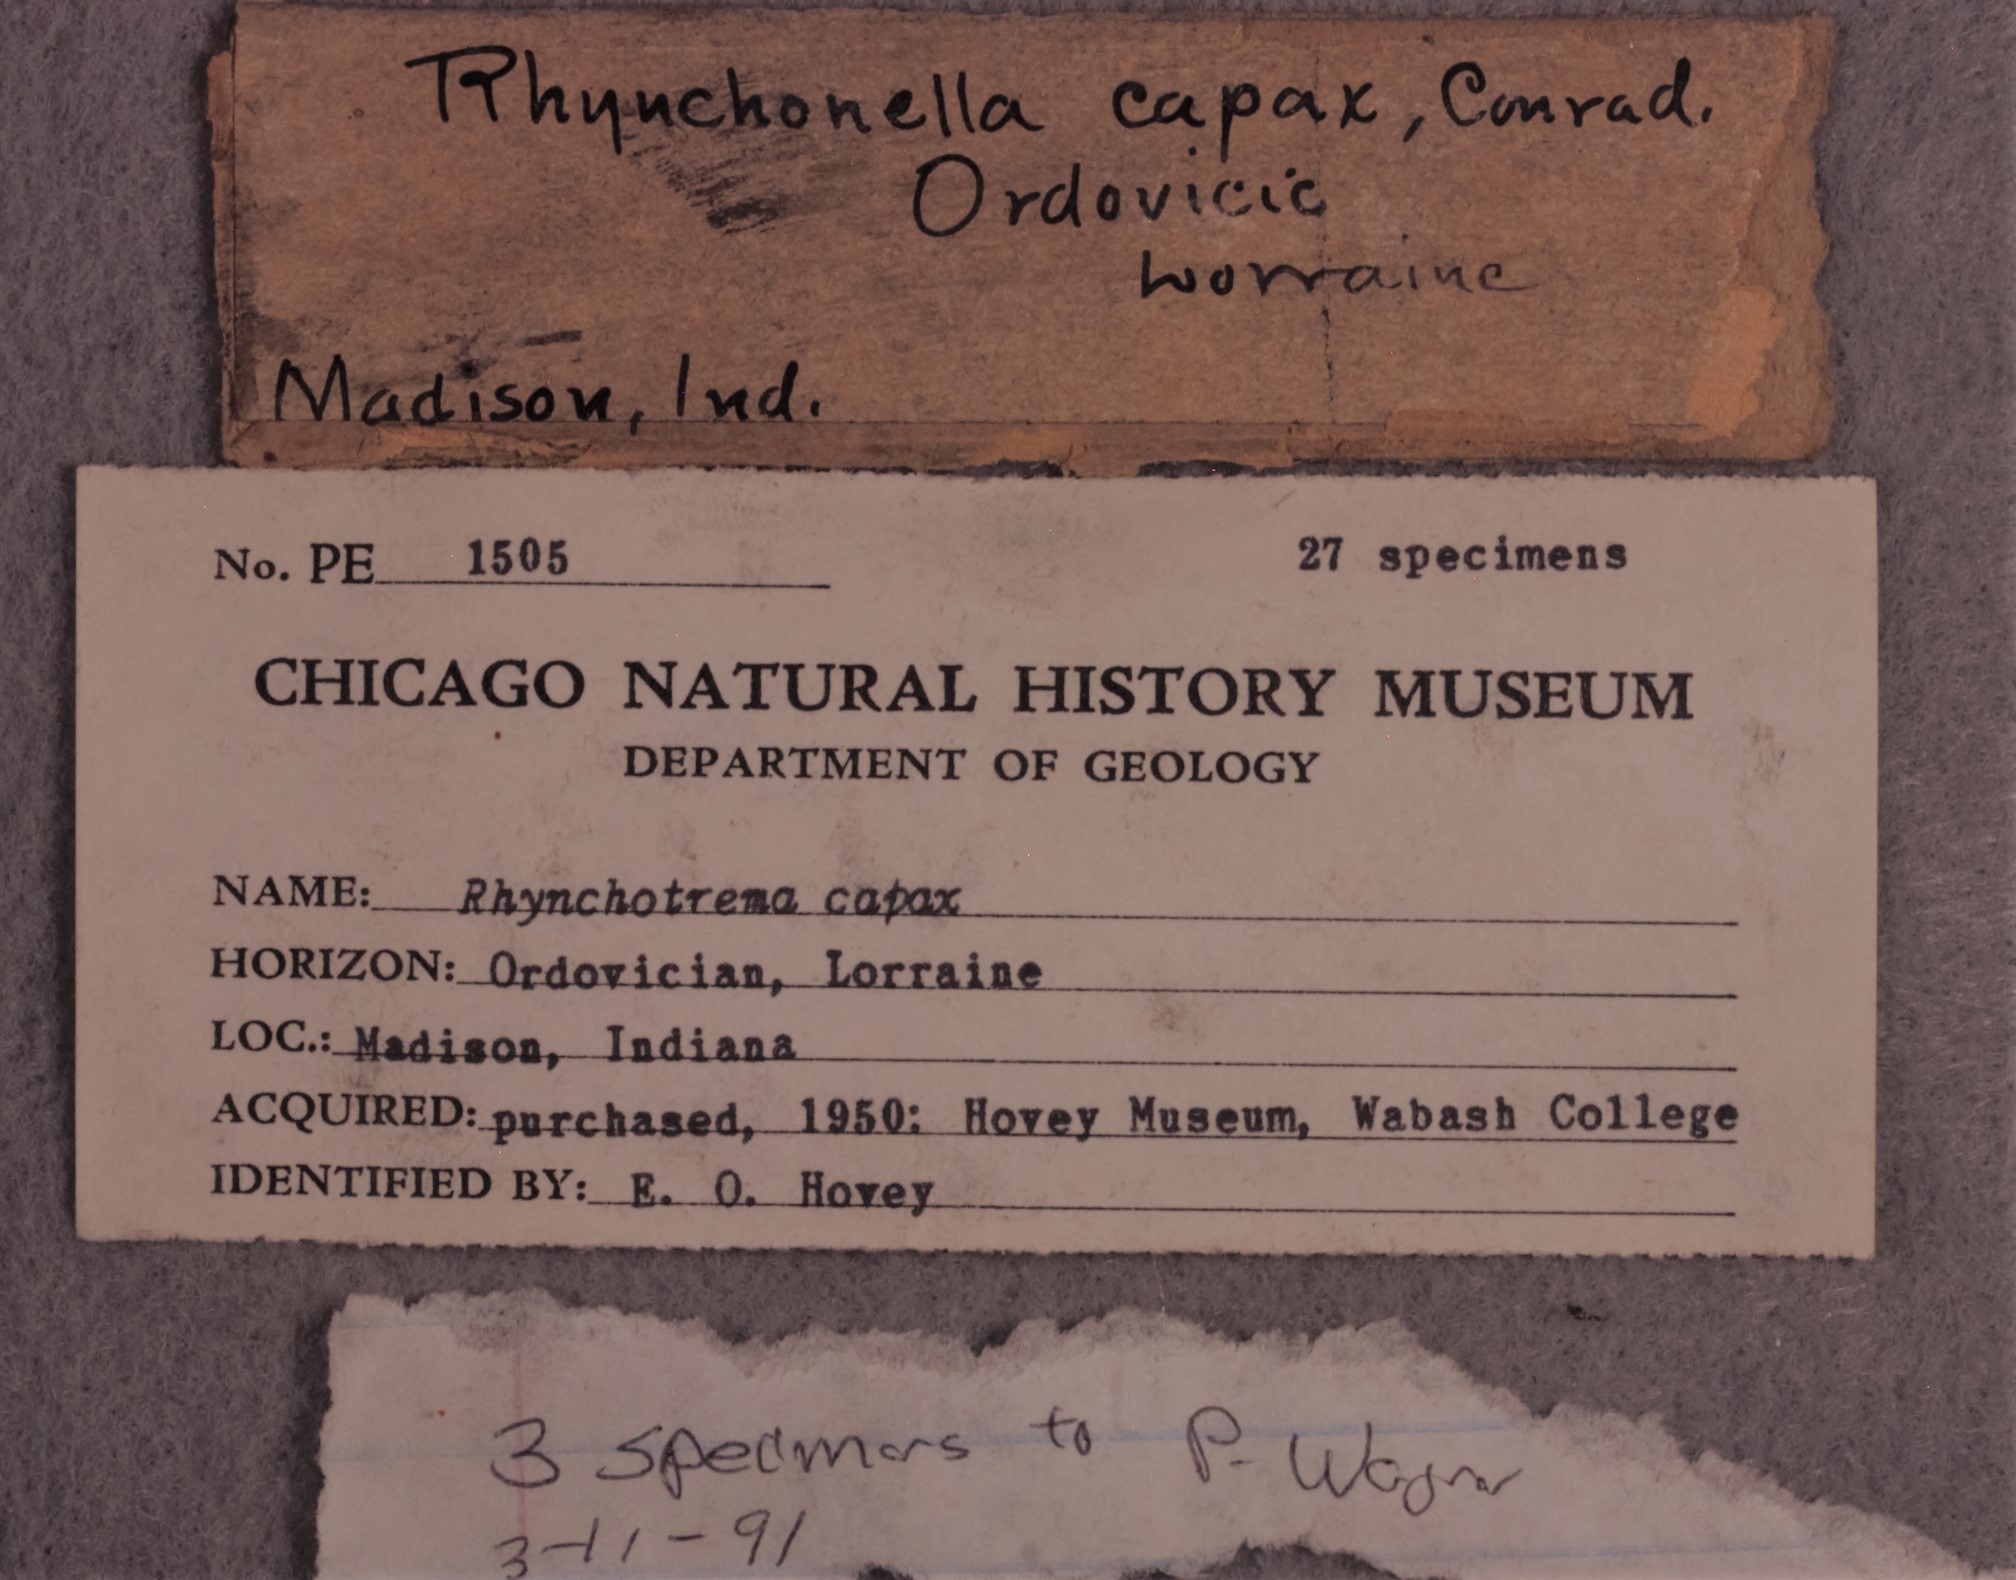 Rhynchonella capax, Conrad.
Ordovicic
Lorraine
Madison, Ind.
No. PE 1505 27 specimens
CHICAGO NATURAL HISTORY MUSEUM
DEPARTMENT OF GEOLOGY
NAME: Rhynchotrema capax
HORIZON: Ordovician, Lorraine
LOC.: Madison, Indiana
ACQUIRED: purchased, 1950: Hovey Museum, Wabash College
IDENTIFIED BY: E. O. Hovey
3 specimens to P. Wagner
3-11-91